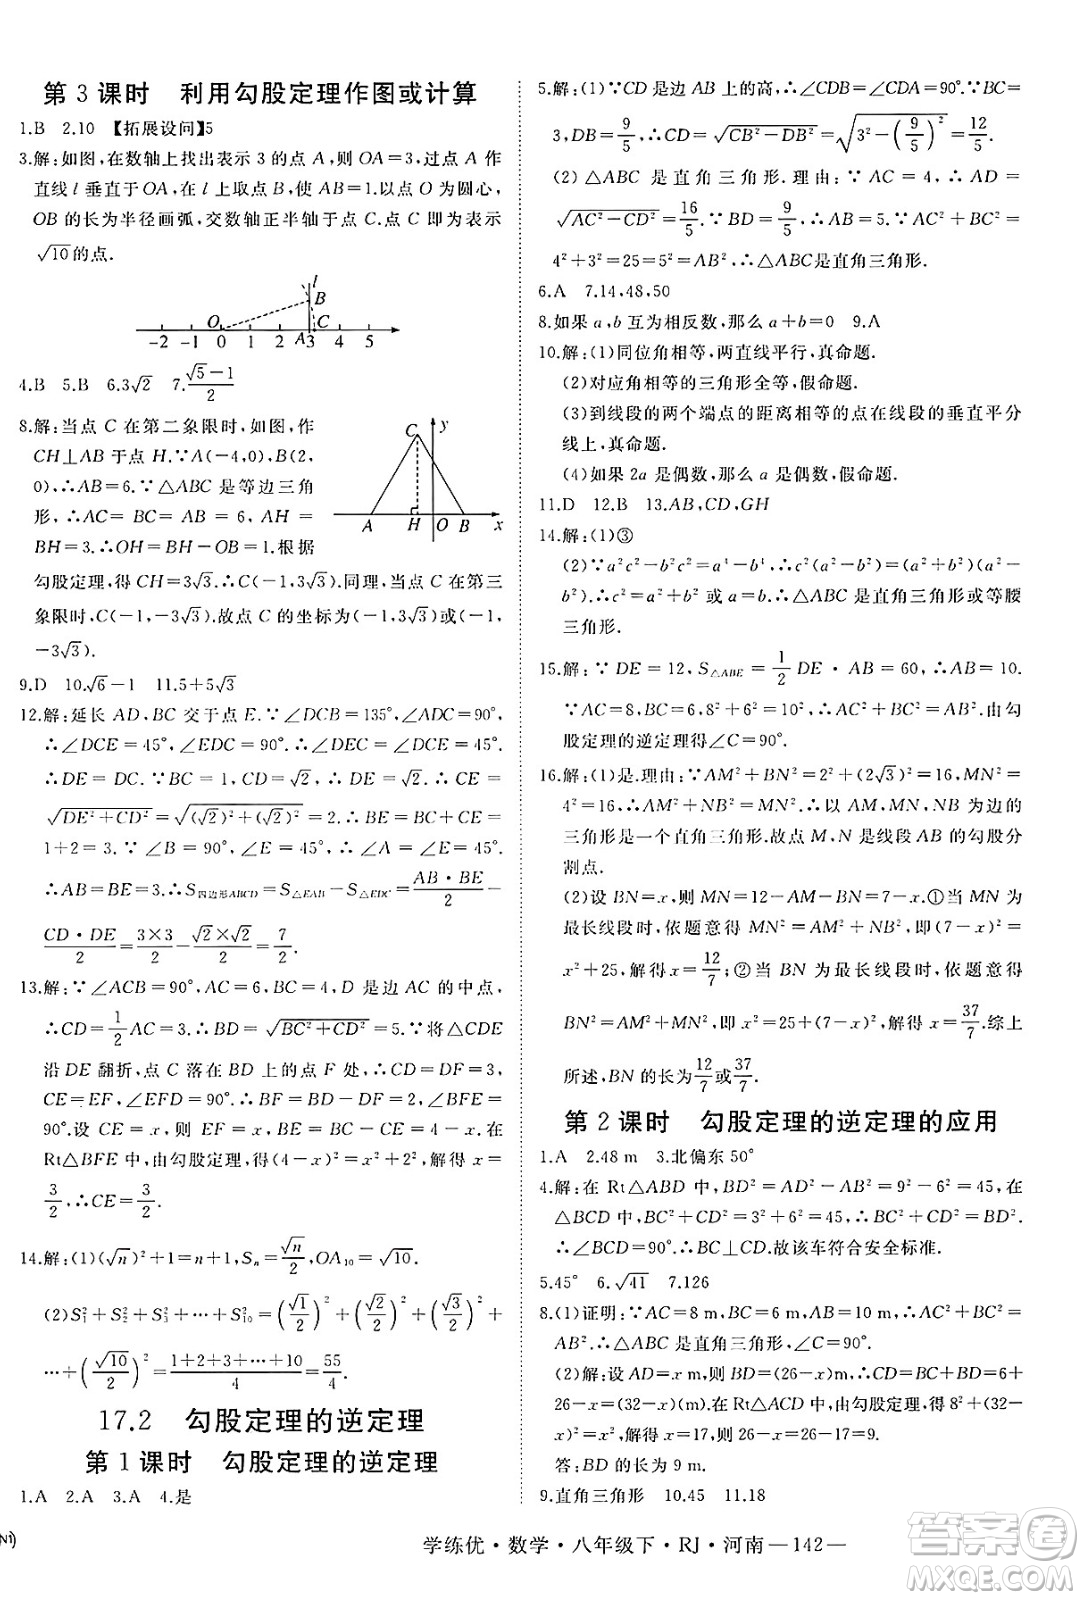 第 3 课时　利用勾股定理作图或计算
1.B　2.10　【拓展设问】5
3.解:如图,在数轴上找出表示 3 的点 A,则 OA=3,过点 A 作
直线 l 垂直于 OA,在 l 上取点 B,使 AB=1.以点 O 为圆心,
OB 的长为半径画弧,交数轴正半轴于点 C.点 C 即为表示
√10的点.
l
B
O
A
C
-2 -1 0 1 2 3 4 5
4.B　5.B　6.3√2　7.(√5-1)/2
8.解:当点 C 在第二象限时,如图,作
CH⊥AB 于点 H.∵A(-4,0),B(2,
0),∴AB=6.∵△ABC 是等边三角
形,∴AC=BC=AB=6,AH=
BH=3.∴OH=BH-OB=1.根据
勾股定理,得 CH=3√3.同理,当点 C 在第三
象限时,C(-1,-3√3).故点 C 的坐标为(-1,3√3)或(-1,
-3√3).
C y
A H O B x
9.D　10.√6-1　11.5+5√3
12.解:延长 AD,BC 交于点 E.∵∠DCB=135°,∠ADC=90°,
∴∠DCE=45°,∠EDC=90°.∴∠DEC=∠DCE=45°.
∴DE=DC.∵BC=1,CD=√2,∴DE=√2.∴CE=
√(DE²+CD²)=√((√2)²+(√2)²)=2.∴BE=BC+CE=
1+2=3.∵∠B=90°,∴∠EAB=∠DEC=45°.
∴AB=BE=3.∴S四边形ABCD=S△EAB-S△EDC=(AB·BE)/2-
(CD·DE)/2=(3×3)/2-(√2×√2)/2=7/2.
13.解:∵∠ACB=90°,AC=6,BC=4,D 是边 AC 的中点,
∴CD=1/2AC=3.∴BD=√(BC²+CD²)=5.∵将△CDE
沿 DE 翻折,点 C 落在 BD 上的点 F 处,∴CD=DF=3,
CE=EF.∴BF=BD-DF=2,∠BFE=∠DFE=∠C=
90°.设 CE=x,则 EF=CE=x,BE=BC-CE=4-x.在
Rt△BFE 中,由勾股定理,得(4-x)²=x²+2²,解得 x=
3/2,∴CE=3/2.
14.解:(1)(√n)²+1=n+1,Sn=√n/2,OA10=√10.
(2)S₁²+S₂²+S₃²+…+S₁₀²=(√1/2)²+(√2/2)²+(√3/2)²+
…+(√10/2)²=(1+2+3+…+10)/4=55/4.
17.2　勾股定理的逆定理
第 1 课时　勾股定理的逆定理
1.A　2.A　3.A　4.是
5.解:(1)∵CD 是 AB 上的高,∴∠CDB=∠CDA=90°.∵BC=
3,DB=9/5,∴CD=√(CB²-DB²)=√(3²-(9/5)²)=12/5.
(2)△ABC 是直角三角形.理由:∵AC=4,∴AD=
√(AC²-CD²)=16/5.∵BD=9/5,∴AB=5.∵AC²+BC²=
4²+3²=25=5²=AB²,∴△ABC是直角三角形.
6.A　7.14,48,50
8.如果 a,b 互为相反数,那么 a+b=0　9.A
10.解:(1)同位角相等,两直线平行,真命题.
(2)对应角相等的三角形全等,假命题.
(3)到线段的两个端点的距离相等的点在线段的垂直平分
线上,真命题.
(4)如果 2a 是偶数,那么 a 是偶数,假命题.
11.D　12.B　13.AB,CD,GH
14.解:(1)③
(2)∵a²c²-b²c²=a⁴-b⁴,∴c²(a²-b²)=(a²+b²)(a²-
b²).∴c²=a²+b²或a=b.∴△ABC 是直角三角形或等腰
三角形.
15.解:∵DE=12,S△ABE=1/2DE·AB=60,∴AB=10.
∵AC=8,BC=6,∴AC²+BC²=8²+6²=10²=AB².由勾
股定理的逆定理得∠C=90°.
16.解:(1)是.理由:∵AM²+BN²=2²+(2√3)²=16,MN²=
4²=16,∴AM²+NB²=MN².∴以 AM,MN,NB 为边的
三角形是一个直角三角形.故点 M,N 是线段 AB 的勾股分
割点.
(2)设 BN=x,则 MN=12-AM-BN=7-x.①当 MN 为
最长线段时,依题意得 MN²=AM²+BN²,即(7-x)²=
x²+25,解得 x=12/7;②当 BN 为最长线段时,依题意得
BN²=AM²+MN²,即 x²=25+(7-x)²,解得 x=37/7.综上
所述,BN 的长为12/7或37/7.
第 2 课时　勾股定理的逆定理的应用
1.A　2.48 m　3.北偏东 50°
4.解:在 Rt△ABD 中,BD²=AD²-AB²=9²-6²=45,在
△BCD 中,BC²+CD²=3²+6²=45,∴BC²+CD²=BD².
∴∠BCD=90°.∴BC⊥CD.故该车符合安全标准.
5.45°　6.√41　7.126
8.(1)证明:∵AC=8 m,BC=6 m,AB=10 m,∴AC²+BC²=
AB².∴△ABC 是直角三角形,∠C=90°.
(2)解:设 AD=x m,则 BD=(26-x)m,∴CD=BC+BD=6+
26-x=(32-x)m.在 Rt△ACD 中,由勾股定理,得 8²+(32-
x)²=x²,解得 x=17.∴BD=26-x=26-17=9.
答:BD 的长为 9 m.
9.直角三角形　10.45　11.18
学练优·数学·八年级下·RJ·河南—142—
答案圈
MXQE.COM